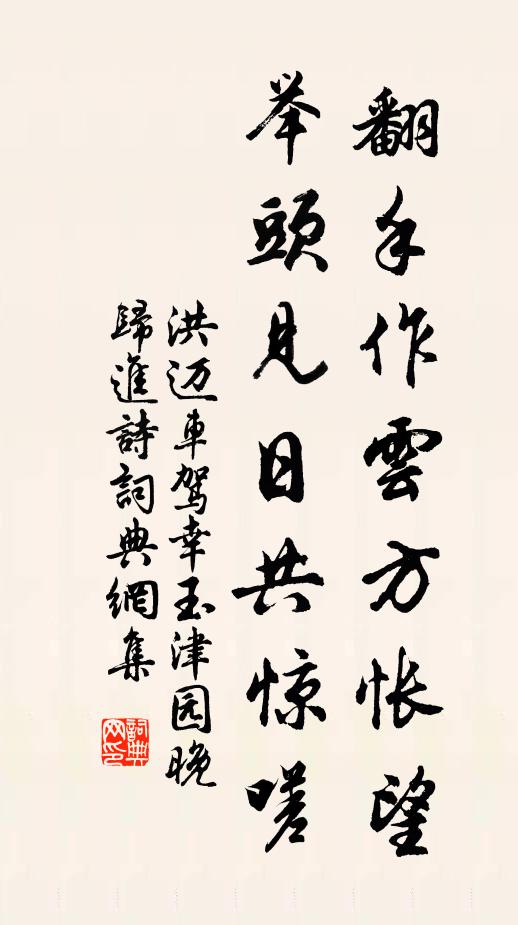 翻手作雲方悵望
举頭見日共惊嗟
洪迈車駕幸玉津园晚
歸進詩詞典網集
詞典
网印